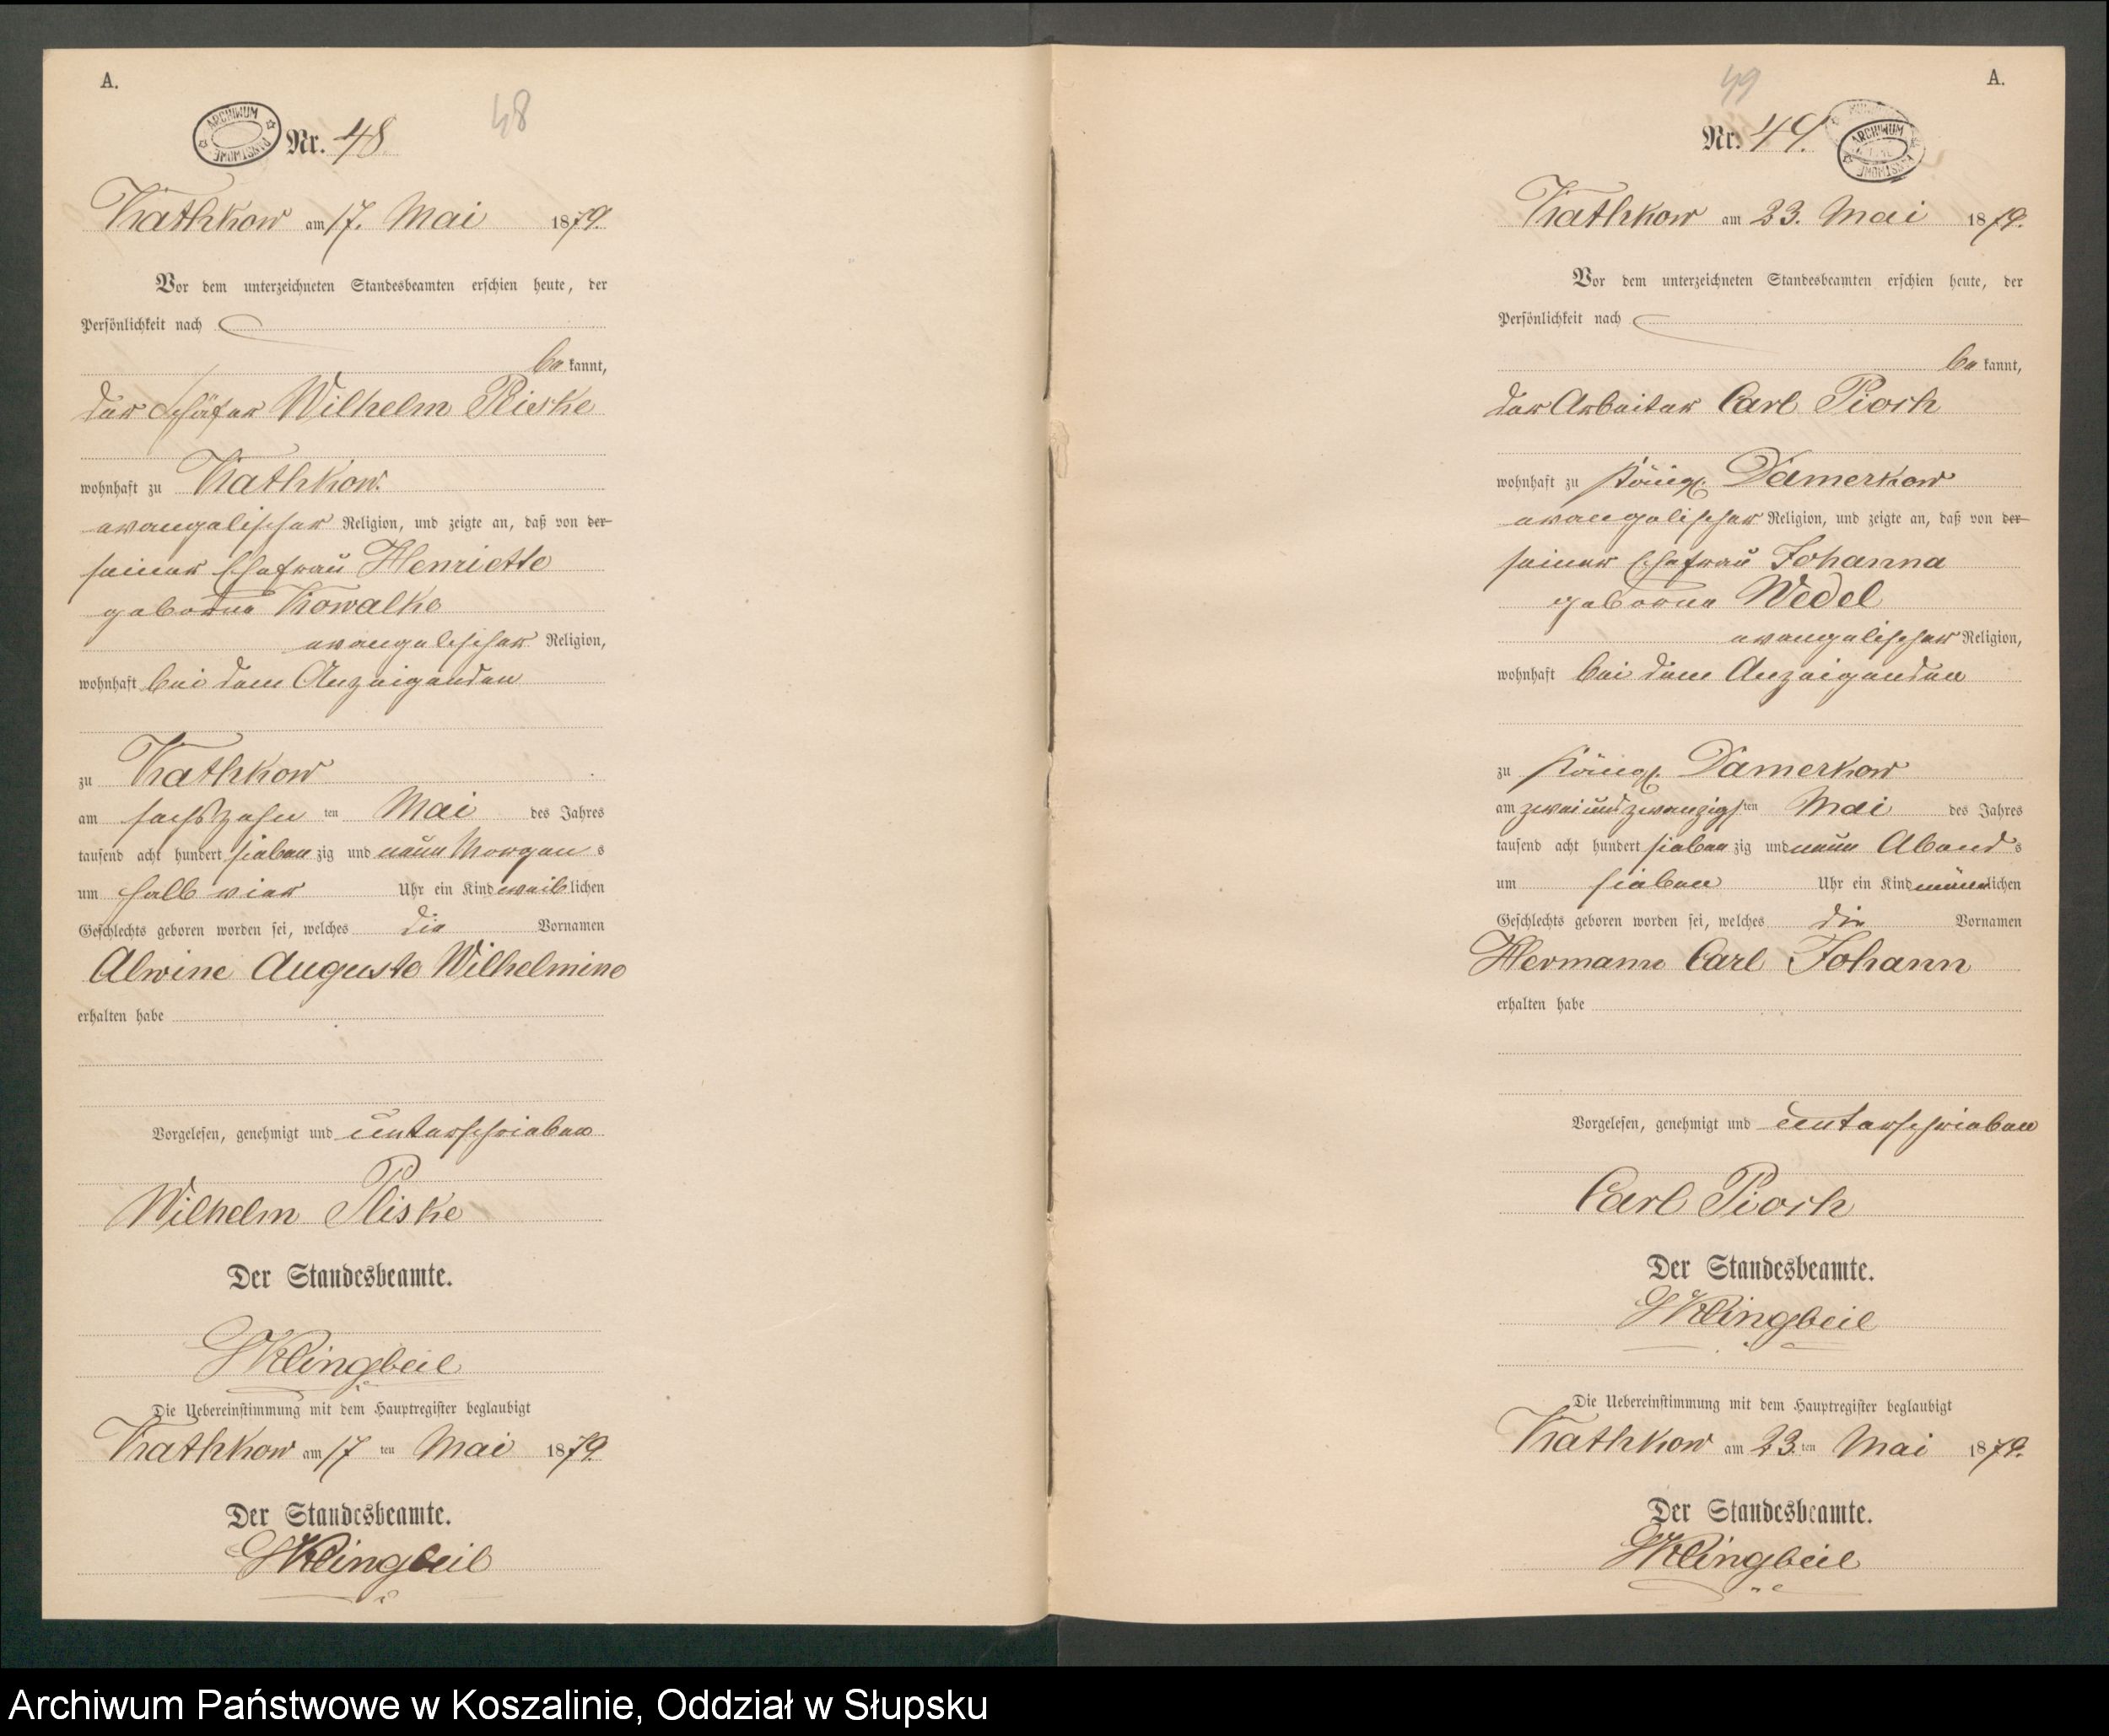 A.
ARCHIWUM PAŃSTWOWE
Nr. 48.
48
Kathkow am 17. Mai 1879.
Vor dem unterzeichneten Standesbeamten erschien heute, der
Persönlichkeit nach
bekannt,
der Schäfer Wilhelm Pliske
wohnhaft zu Kathkow.
evangelischer Religion, und zeigte an, daß von der
seiner Ehefrau Henriette
geborne Kowalke
evangelischer Religion,
wohnhaft bei dem Anzeigenden
zu Kathkow
am sechszehn ten Mai des Jahres
tausend acht hundert siebenzig und neun Morgens
um halb vier Uhr ein Kind weiblichen
Geschlechts geboren worden sei, welches die Vornamen
Alwine Auguste Wilhelmine
erhalten habe
Vorgelesen, genehmigt und unterschrieben
Wilhelm Pliske
Der Standesbeamte.
Klingbeil
Die Uebereinstimmung mit dem Hauptregister beglaubigt
Kathkow am 17 ten Mai 1879.
Der Standesbeamte.
Klingbeil
49
A.
Nr. 49.
ARCHIWUM PAŃSTWOWE
Kathkow am 23. Mai 1879.
Vor dem unterzeichneten Standesbeamten erschien heute, der
Persönlichkeit nach
bekannt,
der Arbeiter Carl Pioch
wohnhaft zu Königl. Damerkow
evangelischer Religion, und zeigte an, daß von der
seiner Ehefrau Johanna
geborne Wedel
evangelischer Religion,
wohnhaft bei dem Anzeigenden
zu Königl. Damerkow
am zweiundzwanzigsten Mai des Jahres
tausend acht hundert siebenzig und neun Abends
um sieben Uhr ein Kind männlichen
Geschlechts geboren worden sei, welches die Vornamen
Hermann Carl Johann
erhalten habe
Vorgelesen, genehmigt und unterschrieben
Carl Pioch
Der Standesbeamte.
Klingbeil
Die Uebereinstimmung mit dem Hauptregister beglaubigt
Kathkow am 23. ten Mai 1879.
Der Standesbeamte.
Klingbeil
Archiwum Państwowe w Koszalinie, Oddział w Słupsku